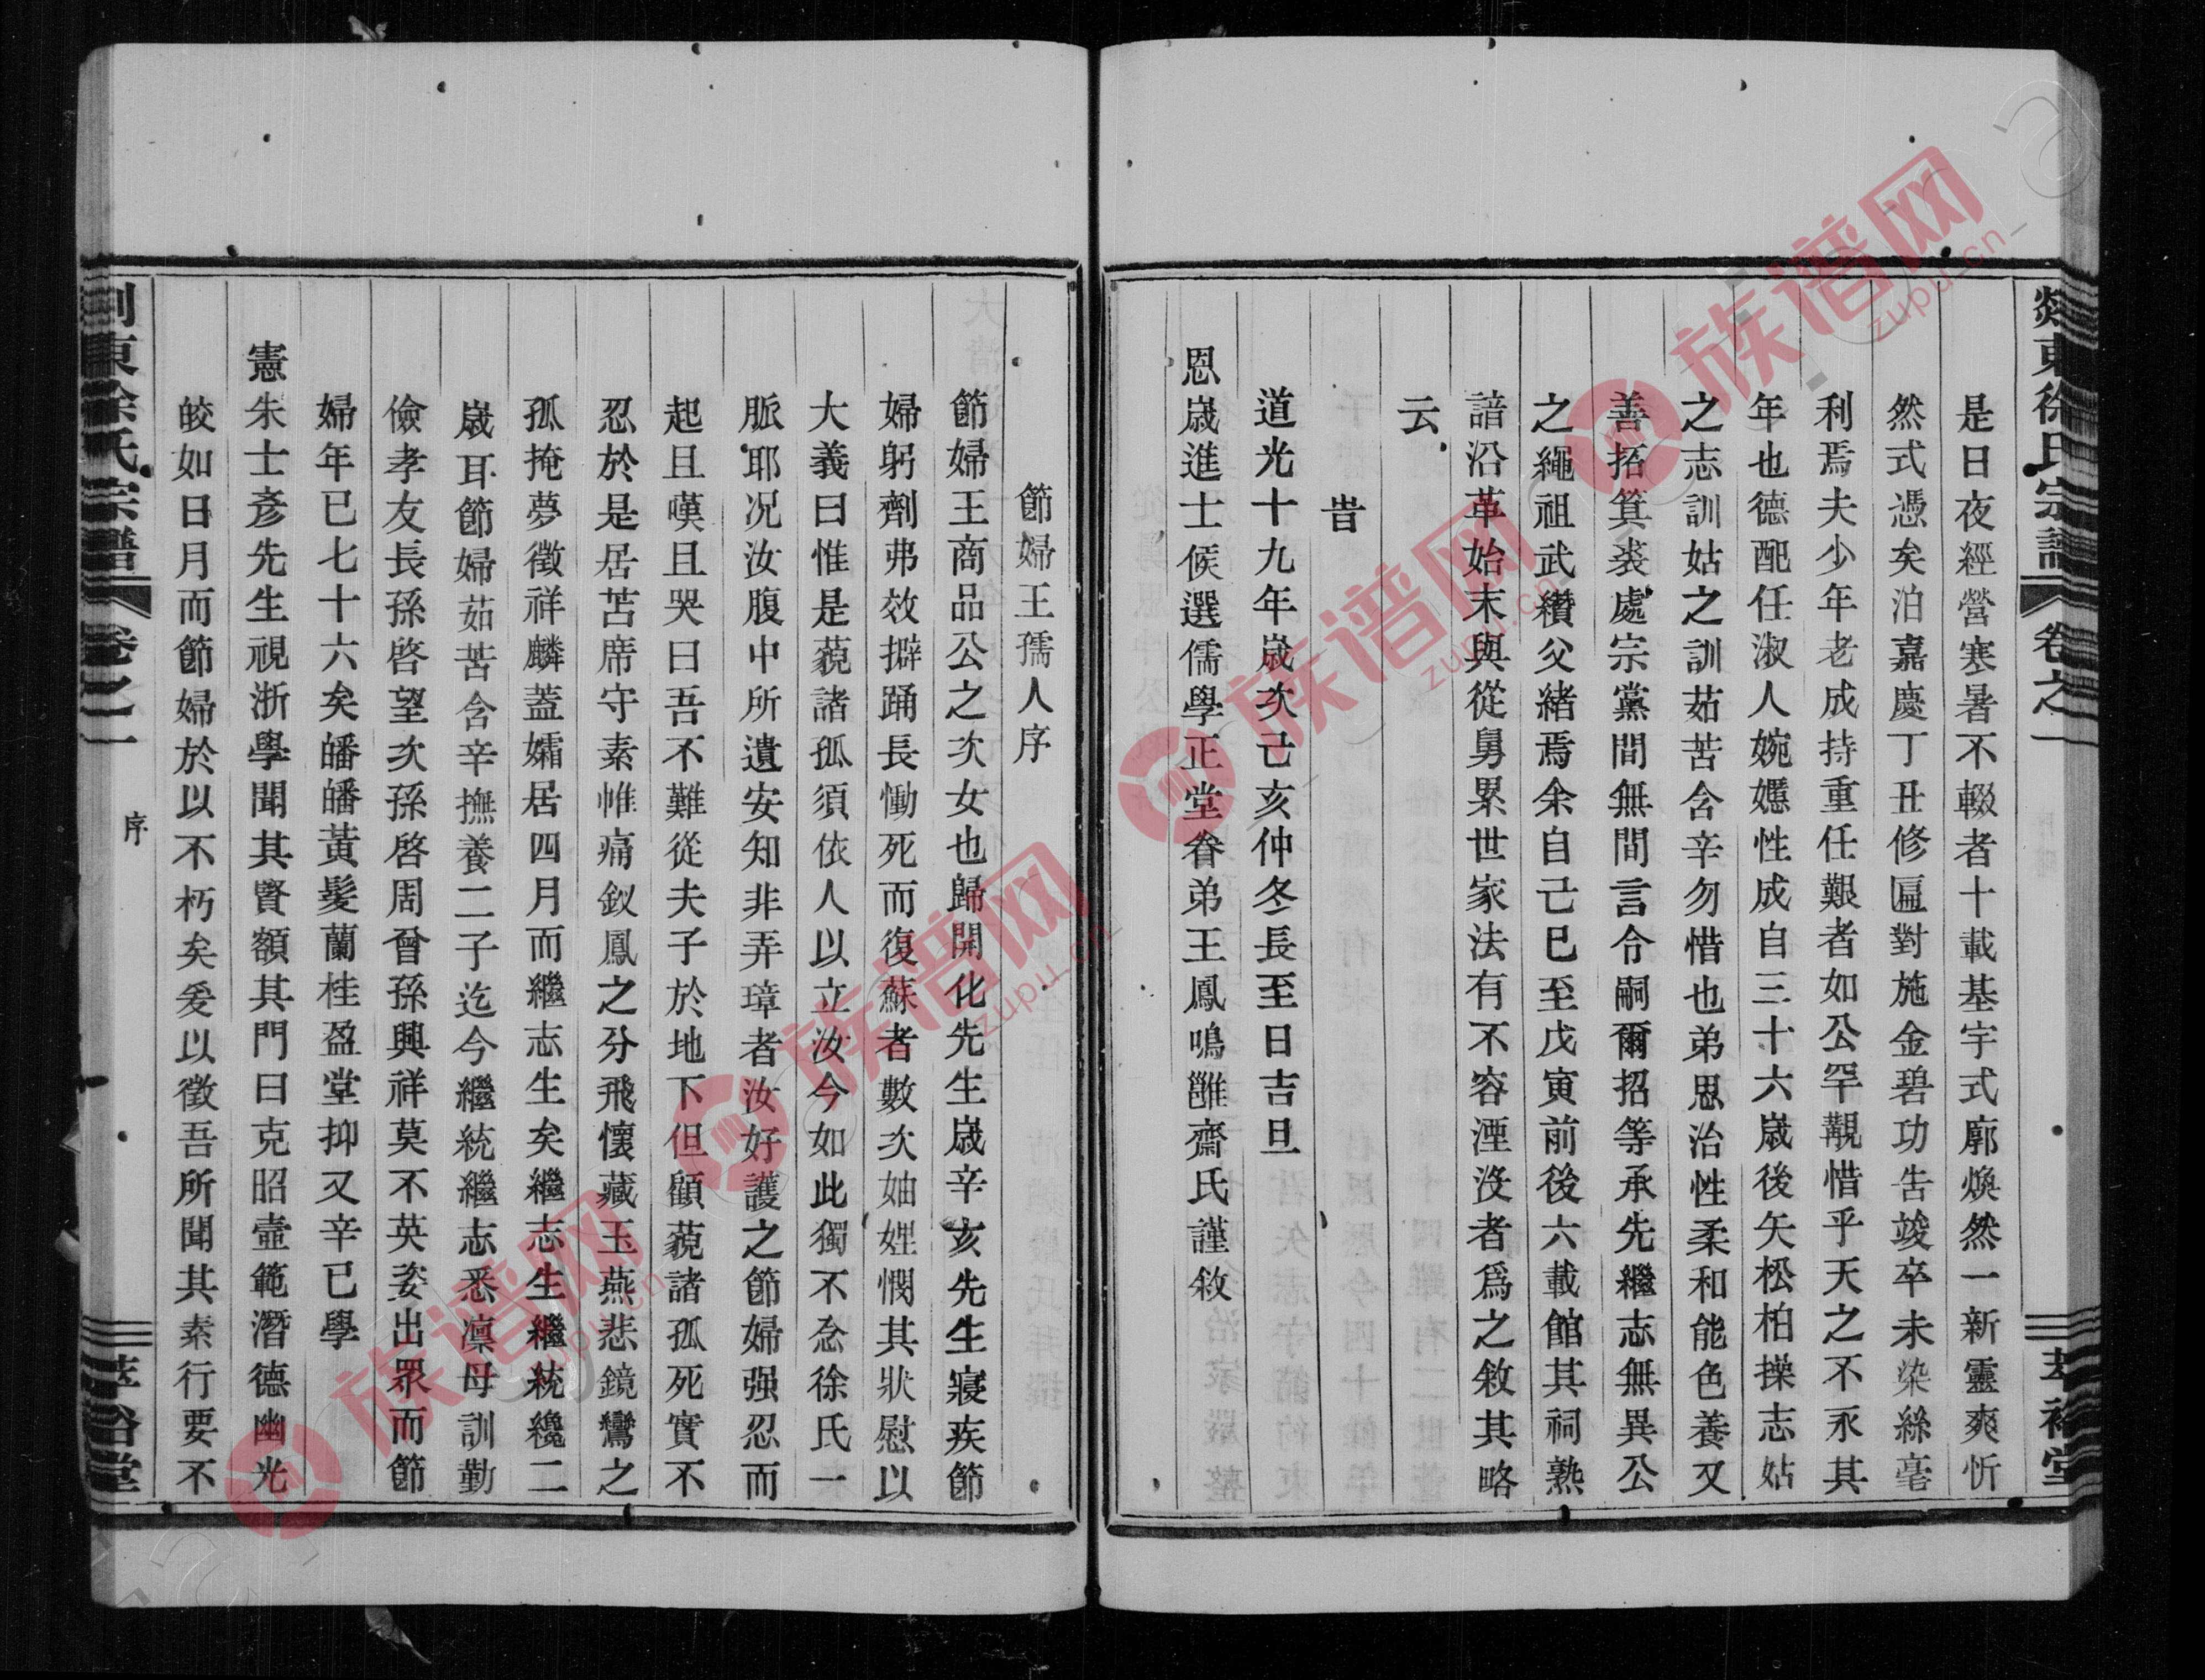 剡東徐氏宗譜
卷之一
萃裕堂
是日夜經營寒暑不輟者十載基宇式廓煥然一新靈爽忻
然式憑矣洎嘉慶丁丑修匾對施金碧功告竣卒未染絲毫
利焉夫少年老成持重任艱者如公罕覯惜乎天之不永其
年也德配任淑人婉嫕性成自三十六歲後矢松柏操志姑
之志訓姑之訓茹苦含辛勿惜也弟思治性柔和能色養又
善拓箕裘處宗黨間無間言令嗣爾招等承先繼志無異公
之繩祖武纘父緒焉余自己巳至戊寅前後六載館其祠熟
諳沿革始末與從舅累世家法有不容湮沒者爲之敘其略
云
旹
道光十九年歲次己亥仲冬長至日吉旦
恩歲進士候選儒學正堂眷弟王鳳鳴雝齋氏謹敘
節婦王孺人序
節婦王商品公之次女也歸開化先生歲辛亥先生寢疾節
婦躬劑弗效擗踊長慟死而復蘇者數次妯娌憫其狀慰以
大義曰惟是藐諸孤須依人以立汝今如此獨不念徐氏一
脈耶况汝腹中所遺安知非弄璋者汝好護之節婦强忍而
起且嘆且哭曰吾不難從夫子於地下但顧藐諸孤死實不
忍於是居苫席守素帷痛釵鳳之分飛懷藏玉燕悲鏡鸞之
孤掩夢徵祥麟蓋孀居四月而繼志生矣繼志生繼統纔二
歲耳節婦茹苦含辛撫養二子迄今繼統繼志悉凜母訓勤
儉孝友長孫啓望次孫啓周曾孫興祥莫不英姿出眾而節
婦年已七十六矣皤皤黃髮蘭桂盈堂抑又辛巳學
憲朱士彥先生視浙學聞其賢額其門曰克昭壼範潛德幽光
皎如日月而節婦於以不朽矣爰以徵吾所聞其素行要不
剡東徐氏宗譜
卷之一
序
萃裕堂
族谱网
zupu.cn